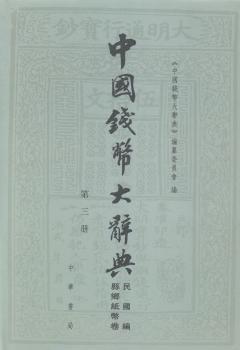 大明通行寶鈔
《中國錢幣大辭典》編纂委員會 編
中國錢幣大辭典
民國編
縣鄉紙幣卷
第三册
中華書局